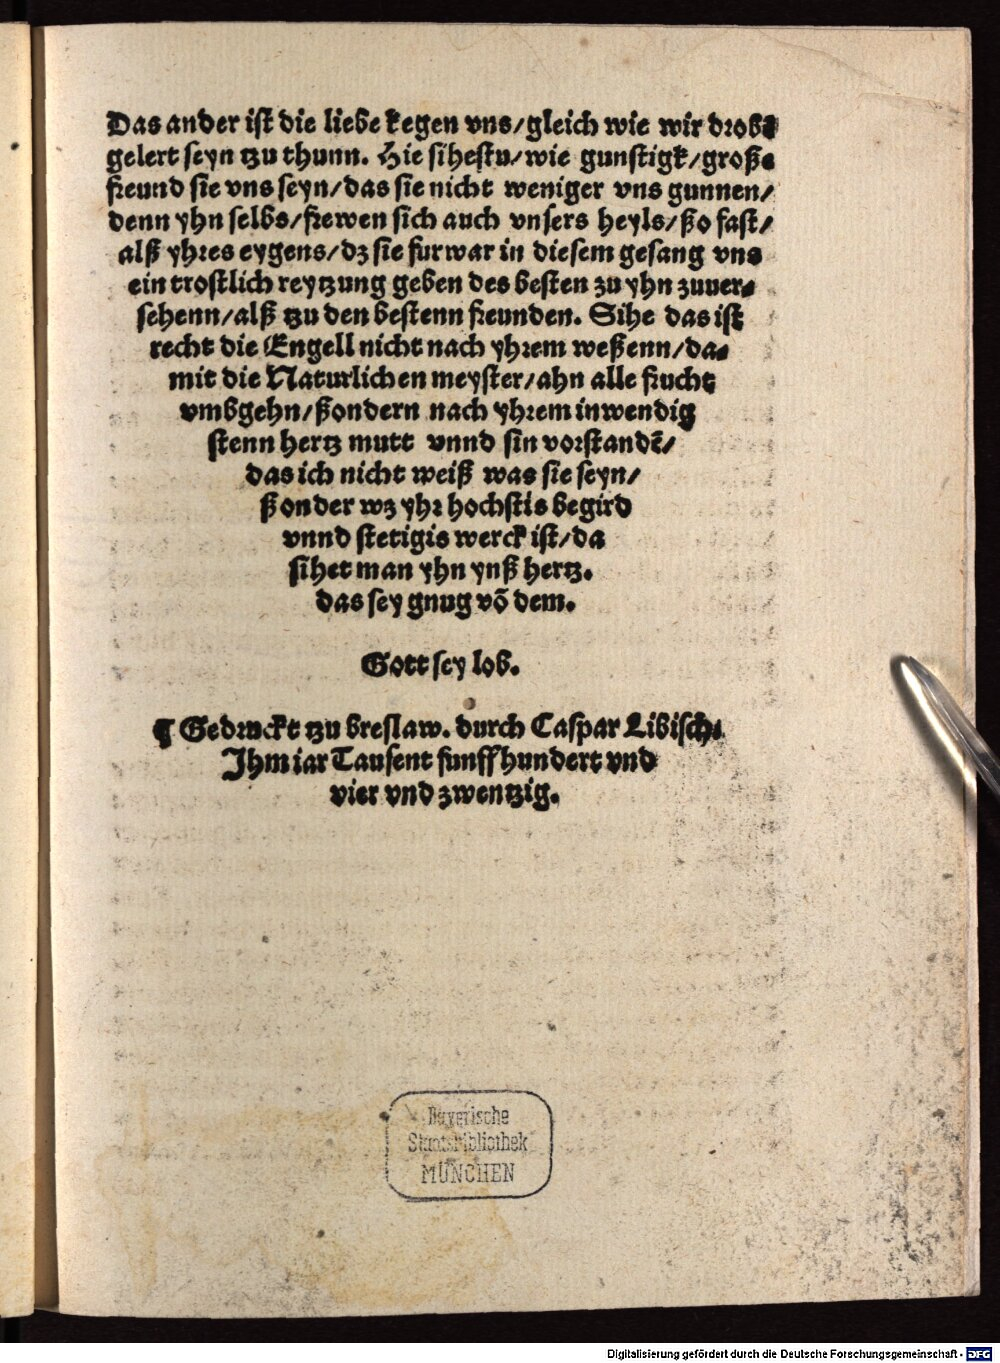 Das ander ist die liebe kegen vns/gleich wie wir drobē
gelert seyn tzu thunn. Hie sihestu/wie gunstigk/große
freund sie vns seyn/das sie nicht weniger vns gunnen/
denn yhn selbs/frewen sich auch vnsers heyls/ßo fast/
alß yhres eygens/dz sie furwar in diesem gesang vns
ein trostlich reytzung geben des besten zu yhn zuuer⸗
sehenn/alß tzu den bestenn freunden. Sihe das ist
recht die Engell nicht nach yhrem weßenn/da⸗
mit die Naturlichen meyster/ahn alle frucht
vmbgehn/ßondern nach yhrem inwendig
stenn hertz mutt vnnd sin vorstandē/
das ich nicht weiß was sie seyn/
ßonder wz yhr hochstis begird
vnnd stetigis werck ist/da
sihet man yhn ynß hertz.
das sey gnug vō dem.
Gott sey lob.
¶ Gedruckt tzu breslaw. durch Caspar Libisch.
Ihm iar Tausent funffhundert vnd
vier vnd zwentzig.
Bayerische
Staatsbibliothek
MÜNCHEN
Digitalisierung gefördert durch die Deutsche Forschungsgemeinschaft - DFG